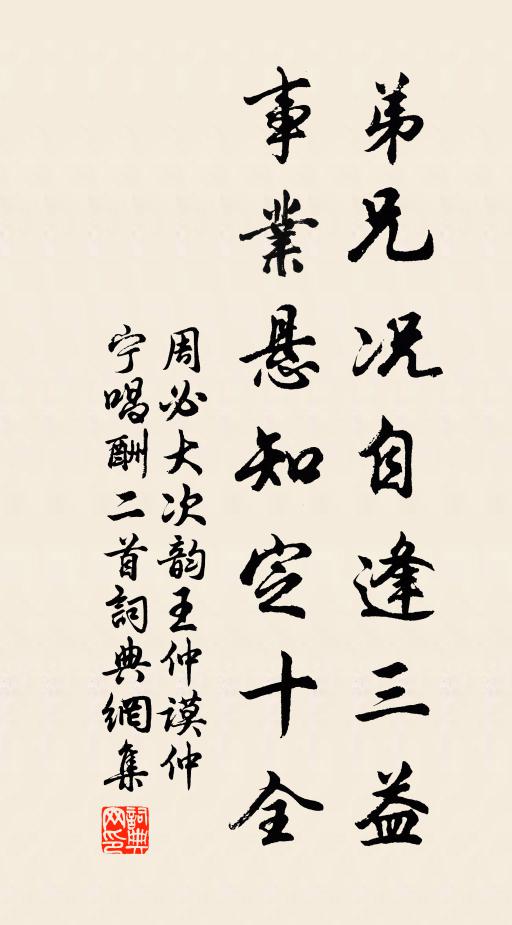 弟兄况自逢三益
事業悬知定十全
周必大次韵王仲謨仲
宁唱酬二首詞典網集
詞典網印